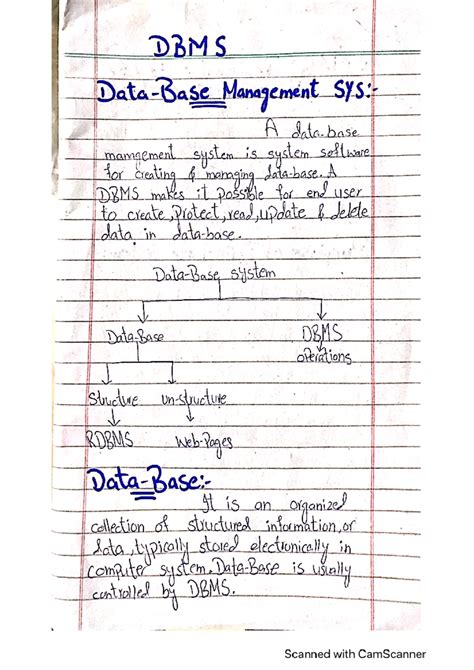 DBMS
Data-Base Management SYS:-
A data-base
mamgement system is system software
for creating & managing data-base. A
DBMS makes it possible for end user
to create, Protect, read, update & delete
data in data-base.
Data-Base system
Data-Base DBMS
operations
Structure un-structure
RDBMS Web-Pages
Data-Base:-
It is an organized
collection of structured information, or
data, typically stored electronically in
computer system. Data-Base is usually
controlled by DBMS.
Scanned with CamScanner